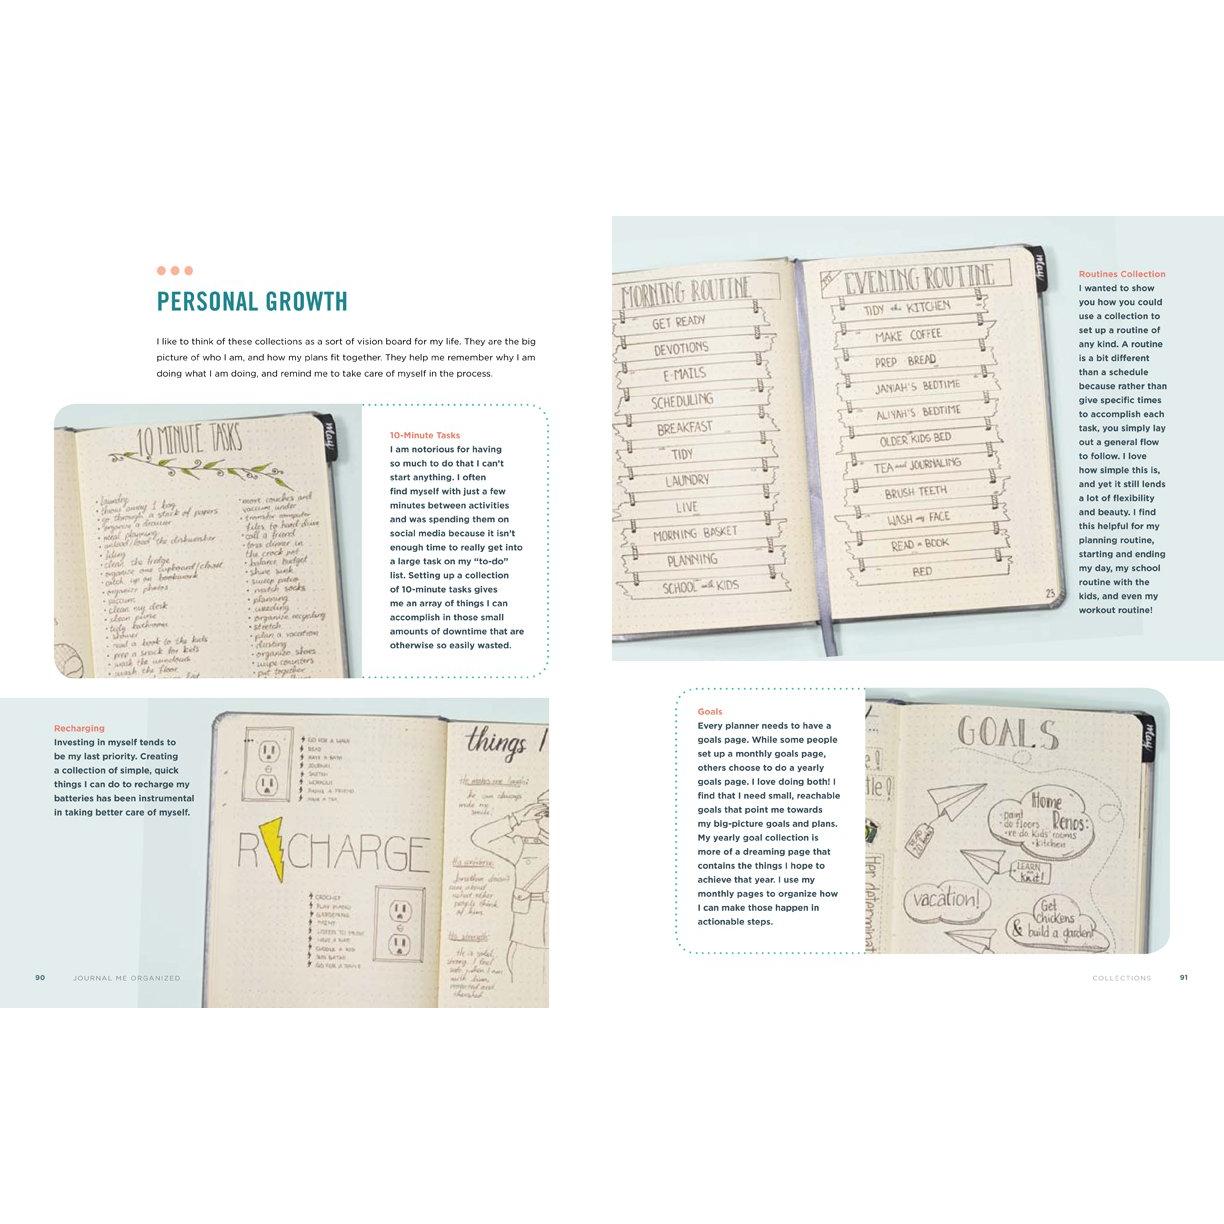 PERSONAL GROWTH
I like to think of these collections as a sort of vision board for my life. They are the big
picture of who I am, and how my plans fit together. They help me remember why I am
doing what I am doing, and remind me to take care of myself in the process.
10 MINUTE TASKS
may
• laundry
• throw away 1 bag
• go through a stack of papers
• organize a drawer
• meal planning
• unload/load the dishwasher
• filing
• clean the fridge
• organize one cupboard/closet
• catch up on bookwork
• organize photos
• vacuum
• clean my desk
• clean purse
• tidy bathroom
• shower
• read a book to the kids
• prep a snack for kids
• wash the windows
• wash the floor
• move couches and
vacuum under
• transfer computer
files to hard drive
• call a friend
• toss dinner in
the crock pot
• balance budget
• shine sink
• sweep patio
• match socks
• planning
• weeding
• organize recycling
• stretch
• plan a vacation
• dusting
• organize shoes
• wipe counters
• put together
10-Minute Tasks
I am notorious for having
so much to do that I can't
start anything. I often
find myself with just a few
minutes between activities
and was spending them on
social media because it isn't
enough time to really get into
a large task on my “to-do”
list. Setting up a collection
of 10-minute tasks gives
me an array of things I can
accomplish in those small
amounts of downtime that are
otherwise so easily wasted.
Recharging
Investing in myself tends to
be my last priority. Creating
a collection of simple, quick
things I can do to recharge my
batteries has been instrumental
in taking better care of myself.
GO FOR A WALK
READ
TAKE A BATH
JOURNAL
SKETCH
WORKOUT
PHONE A FRIEND
HAVE A TEA
RECHARGE
CROCHET
PLAY PIANO
GARDENING
PAINT
LISTEN TO MUSIC
HAVE A NAP
CUDDLE A KID
SUN BATHE
GO FOR A DRIVE
things I
He makes me laugh:
he can always
make me
smile.
His uniform:
Jonathan doesn't
care about
what other
people think
of him.
His strength:
He is solid,
strong. I feel
safe when I am
with him,
protected and
cherished
90 JOURNAL ME ORGANIZED
MORNING ROUTINE
GET READY
DEVOTIONS
E-MAILS
SCHEDULING
BREAKFAST
TIDY
LAUNDRY
LIVE
MORNING BASKET
PLANNING
SCHOOL with KIDS
EVENING ROUTINE
TIDY the KITCHEN
MAKE COFFEE
PREP BREAD
JANIAH'S BEDTIME
ALIYAH'S BEDTIME
OLDER KIDS BED
TEA and JOURNALING
BRUSH TEETH
WASH my FACE
READ a BOOK
BED
23
may
Routines Collection
I wanted to show
you how you could
use a collection to
set up a routine of
any kind. A routine
is a bit different
than a schedule
because rather than
give specific times
to accomplish each
task, you simply lay
out a general flow
to follow. I love
how simple this is,
and yet it still lends
a lot of flexibility
and beauty. I find
this helpful for my
planning routine,
starting and ending
my day, my school
routine with the
kids, and even my
workout routine!
Goals
Every planner needs to have a
goals page. While some people
set up a monthly goals page,
others choose to do a yearly
goals page. I love doing both! I
find that I need small, reachable
goals that point me towards
my big-picture goals and plans.
My yearly goal collection is
more of a dreaming page that
contains the things I hope to
achieve that year. I use my
monthly pages to organize how
I can make those happen in
actionable steps.
GOALS
may
Home
Renos:
• paint
• do floors
• re-do kids' rooms
• kitchen
READ
20 books
LEARN
to knit!
vacation!
Get
chickens
& build a garden
Her determination
COLLECTIONS 91